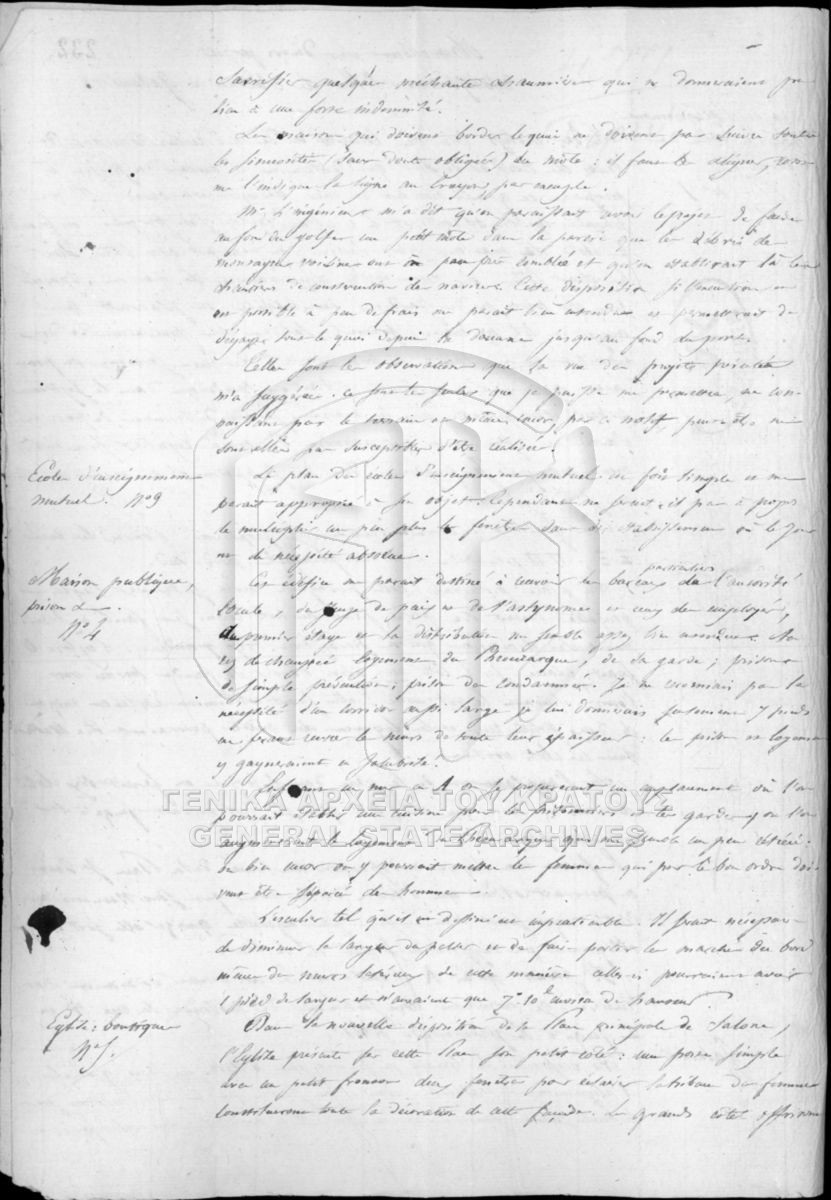 sacrifier quelque méchante chaumière qui ne donneraient pas
lieu à une forte indemnité.
Les maisons qui doivent border le quai ne doivent pas suivre toutes
les sinuosités (sans doute obligées) du môle : il faut les aligner, com-
me l'indique la ligne au crayon par exemple.
Mr. l'ingénieur m'a dit qu'on paraissait avoir le projet de faire
au fond du golfe un petit môle dans la partie que les débris de
montagnes voisines ont à peu près comblée et qu'on établirait là les
chantiers de construction de navires. Cette disposition si l'exécution en
est possible à peu de frais me paraît bien entendue et permettrait de
dégager tout le quai depuis la douane jusqu'au fond du port.
Telles sont les observations que la vue des projets
m'a suggérées. Ce sont les seules que je puisse me permettre, ne con-
naissant pas le terrain et même pour ce motif, peut-être ne
sont elles pas susceptibles d'être réalisées.
Ecole d'enseignement
mutuel. No 9
Le plan des écoles d'enseignement mutuel est fort simple et me
paraît approprié à son objet. Cependant ne serait-il pas à propos
de multiplier un peu plus les fenêtres dans un établissement où le jour
est de nécessité absolue.
Maison publique,
prison &.
No 4
particuliers
Cet édifice me paraît destiné à couvrir les bureaux de l'autorité
locale, du juge de paix et de l'astynomie et ceux des employés,
Au premier étage et la distribution me semble assez bien entendue. Au
rez de chaussée logement du Démarque, de la garde ; prison
de simple prévention ; prison des condamnés. Je ne reconnais pas la
nécessité d'un corridor aussi large je lui donnerais seulement 7 pieds
en prenant encore les murs de toute leur épaisseur : les prisons et logemens
y gagneraient en salubrité.
un mur en A on se procurerait un emplacement où l'on
pourrait établir une cuisine pour les prisonniers et les gardes, ou l'on
augmenterait le logement du qui me semble un peu rétréci.
Ou bien encore on y pourrait mettre les femmes qui pour le bon ordre doi-
vent être séparées des hommes.
L'escalier tel qu'il est dessiné est impraticable. Il serait nécessaire
de diminuer la largeur du palier et de faire partir les marches du bord
même des murs latéraux de cette manière celles-ci pourraient avoir
1 pied de largeur et n'auraient que 7° 10 environ de hauteur.
Eglise : boutiques
No 5.
Dans la nouvelle disposition de la Place principale de Salone,
l'Eglise présente sur cette Place son petit côté : une porte simple
avec un petit fronton deux fenêtres pour éclairer la tribune des femmes
constitueront toute la décoration de cette façade. Les grands côtés offriront
ΓΕΝΙΚΑ ΑΡΧΕΙΑ ΤΟΥ ΚΡΑΤΟΥΣ
GENERAL STATE ARCHIVES